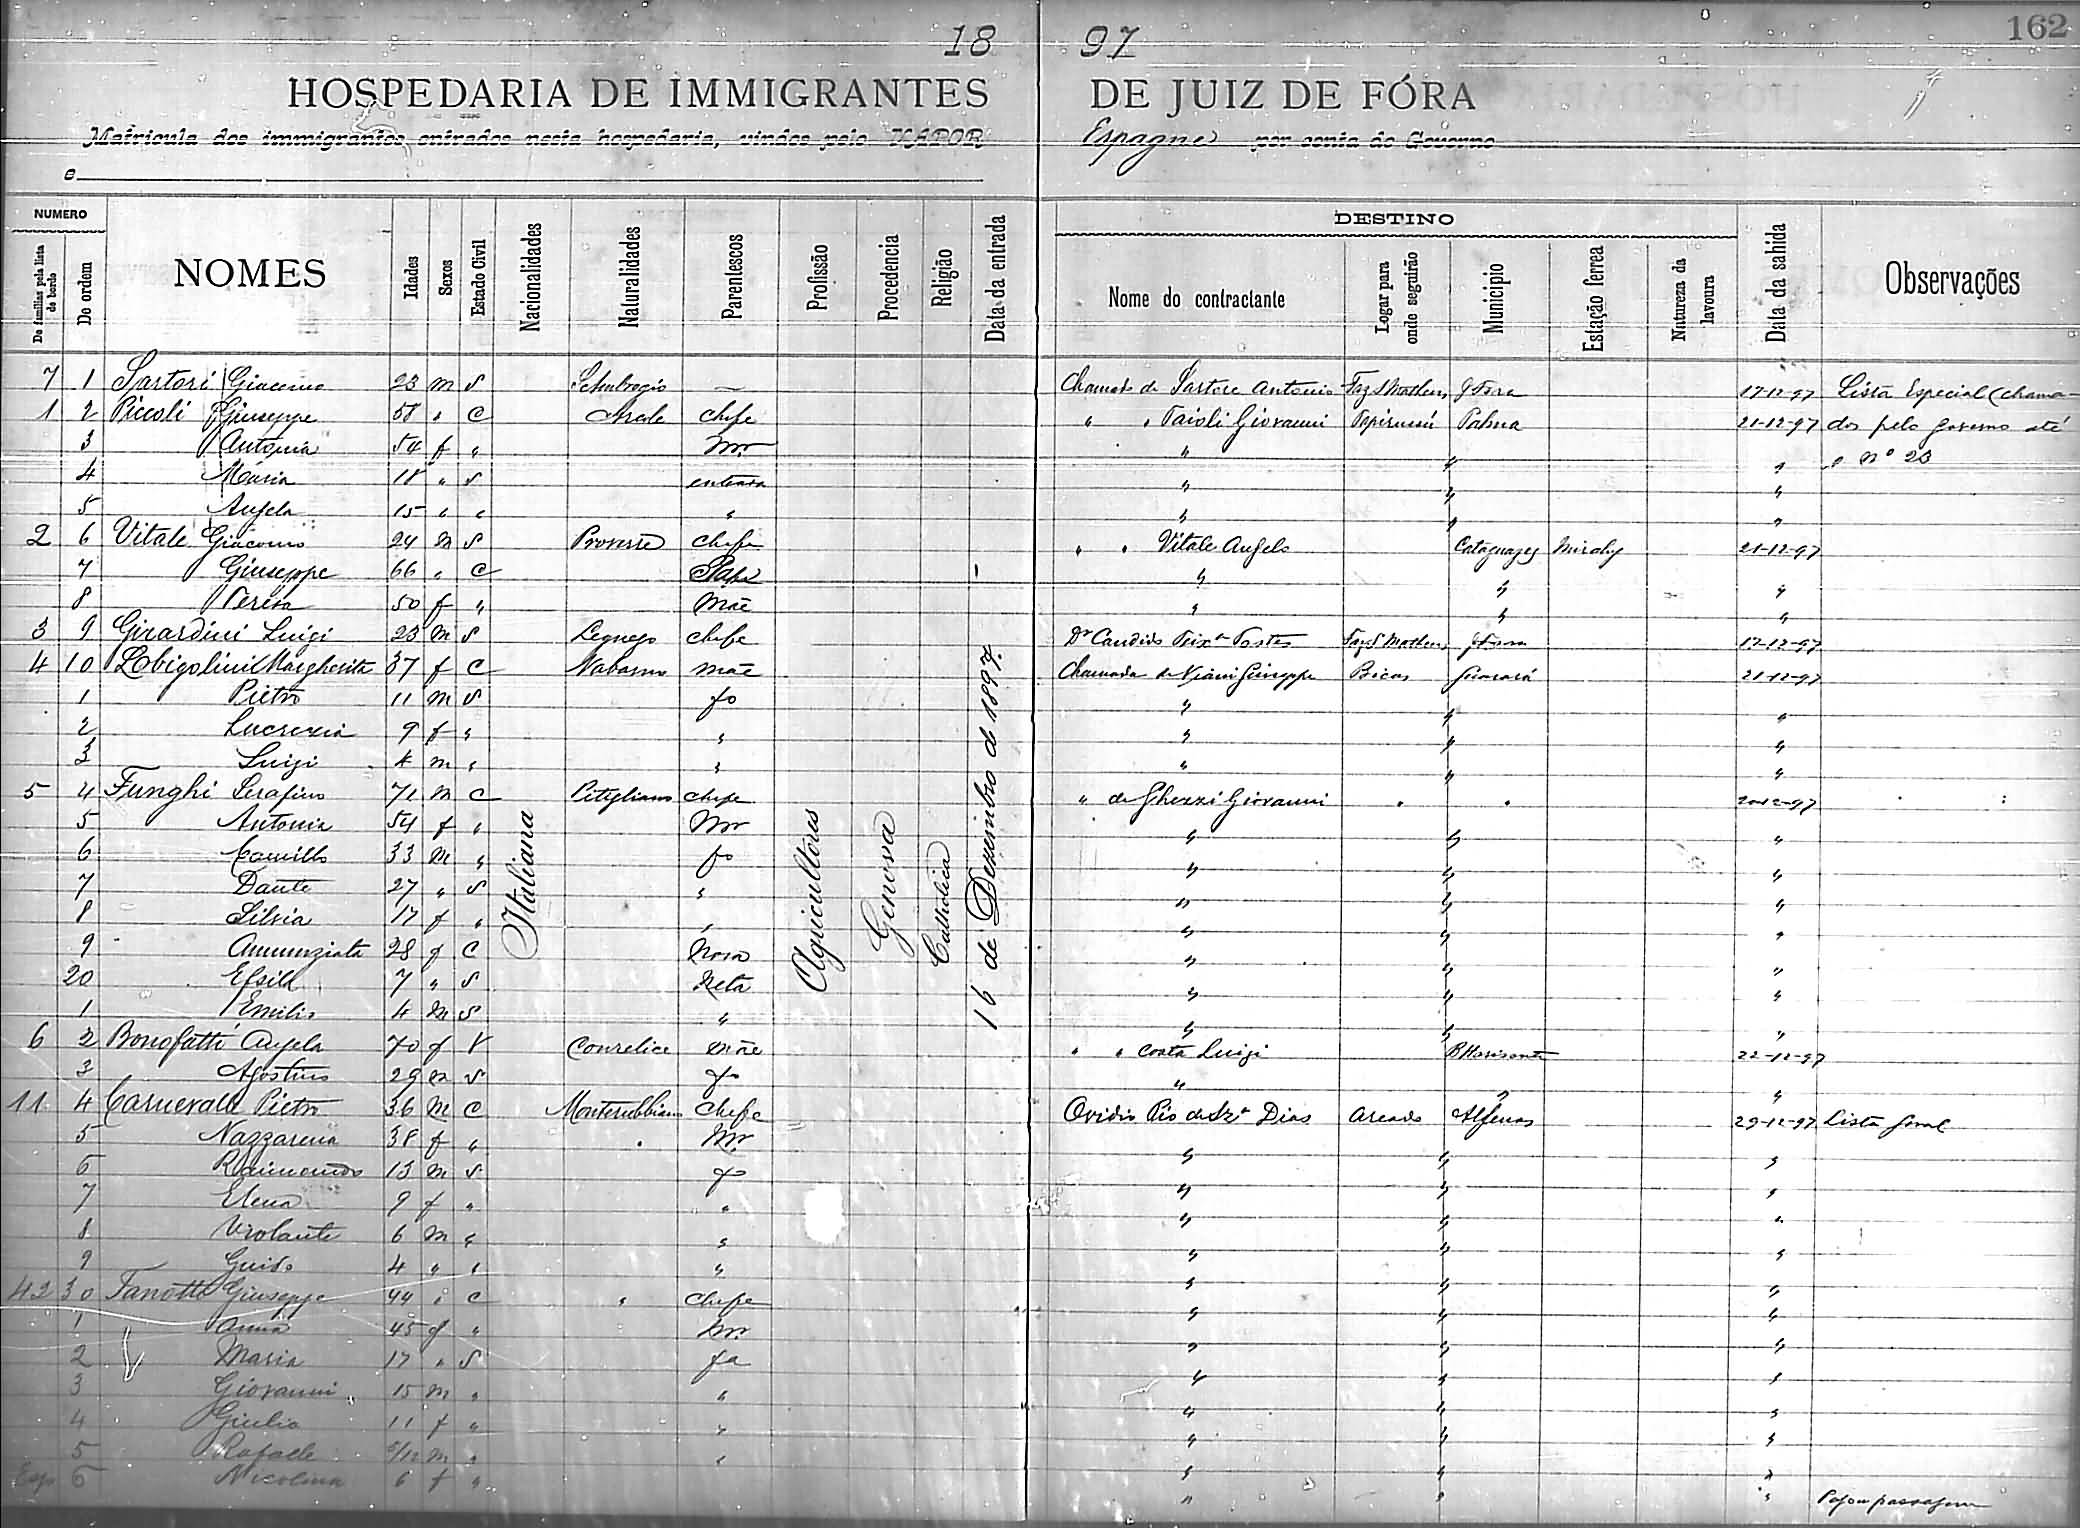 162
18 97
HOSPEDARIA DE IMMIGRANTES DE JUIZ DE FÓRA
Matricula dos immigrantes entrados nesta hospedaria, vindos pelo VAPOR Espagne por conta do Governo
e
NUMERO
De familias pela lista de bordo
De ordem
NOMES
Idades
Sexos
Estado Civil
Nacionalidades
Naturalidades
Parentescos
Profissão
Procedencia
Religião
Data da entrada
DESTINO
Nome do contractante
Logar para onde seguirão
Municipio
Estação ferrea
Natureza da lavoura
Data da sahida
Observações
Italiana
Agricultores
Genova
Catholica
16 de Dezembro de 1897.
7 1 Sartori Giacomo 23 m S — Chamado de Sartore Antonio Faz S Matheus J Fora 17-12-97 Lista Especial (chama-
1 2 Piccoli Giuseppe 58 " C Arcole Chefe " " Taioli Giovanni Palma 21-12-97 dos pelo governo até
3 Antonia 54 f " Mer " " " o nº 23
4 Maria 18 " S " " "
5 Angela 15 " " " " " "
2 6 Vitale Giacomo 24 m S Chefe " " Vitale Angelo Cataguazes Mirahy 21-12-97
7 Giuseppe 66 " C " " "
8 Teresa 50 f " Mãe " " "
3 9 Girardini Luigi 23 m S Legnago Chefe Dr Candido Teixra Tostes Faz S Matheus J Fora 17-12-97
4 10 Margherita 37 f C Mãe Chamada de Giuseppe Bicas Guarará 21-12-97
1 Pietro 11 m S fo " " "
2 Lucrezia 9 f " " " " "
3 Luigi 4 m " " " " "
5 4 Funghi Serafino 71 m C Pitigliano Chefe " de Ghezzi Giovanni " " 20-12-97
5 Antonia 54 f " Mer " " "
6 Camillo 33 m " fo " " "
7 Dante 27 " S " " " "
8 Silvia 17 f " " " " "
9 Annunziata 28 f C Nora " " "
20 Ersild 7 " S Neta " " "
1 Emilio 4 m S " " " "
6 2 Bonofatti Angela 70 f V Mãe " " Costa Luigi B Horisonte 22-12-97
3 Agostino 29 m S fo " " "
11 4 Carnevale Pietro 36 m C Monterubbiano Chefe Ovidio Pio de Sza Dias Areado Alfenas 29-12-97 Lista geral
5 Nazzarena 38 f " " Mer " " "
6 Raimondo 13 m S fo " " "
7 Elena 9 f " " " " "
8 Violante 6 m " " " " "
9 Guido 4 " " " " " "
42 30 Fanotti Giuseppe 44 " C " Chefe " " "
1 Anna 45 f " Mer " " "
2 Maria 17 " S fa " " "
3 Giovanni 15 m " " " " "
4 Giulia 11 f " " " " "
5 Rafaele m " " " " "
Esp 6 Nicolina 6 f " " " " Pagou passagem